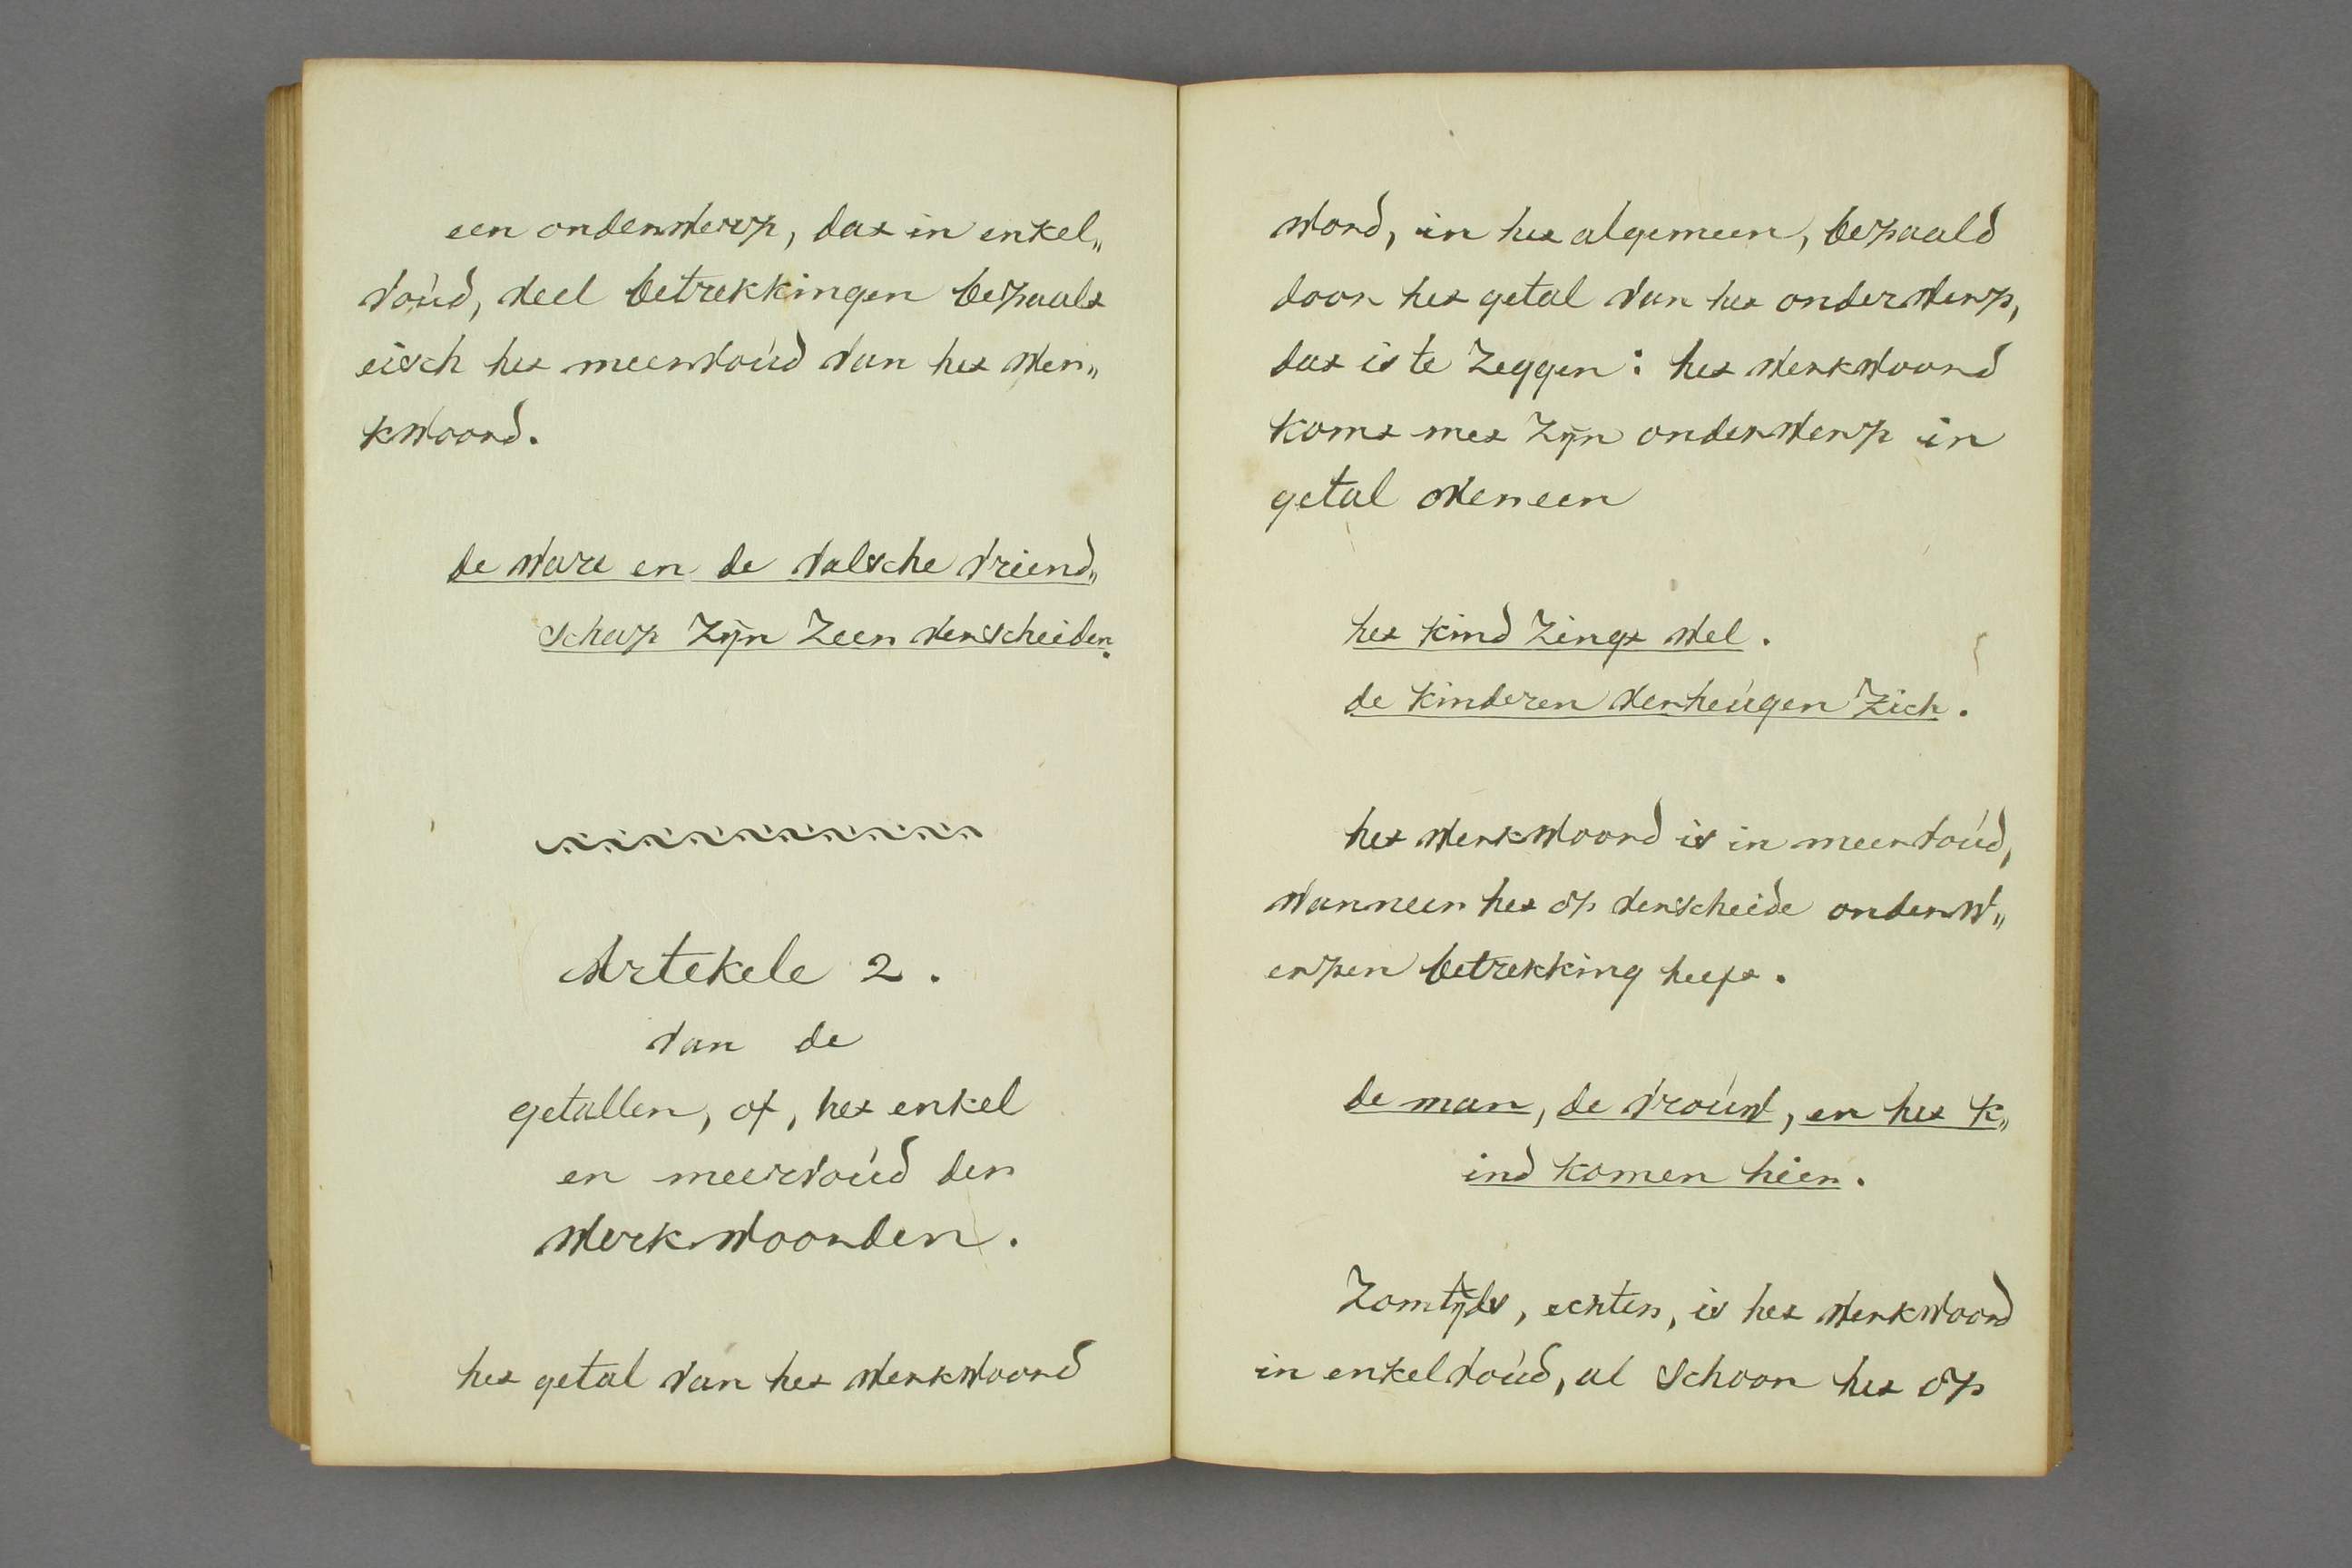 een onderwerp, dat in enkel„
voúd, veel betrekkingen bepaalt
eisch het meervoúd van het wer„
kwoord.
de ware en de valsche vriend„
schap zijn zeer verscheiden.
Artekele 2.
van de
getallen, of, het enkel
en meervoúd der
werkwoorden.
het getal van het werkwoord
word, in het algemeen, bepaald
door het getal van het onderwerp,
dat is te zeggen: het werkwoord
komt met zijn onderwerp in
getal overeen
het kind zingt wel.
de kinderen verheúgen zich.
het werkwoord is in meervoúd,
wanneer het op verscheide onderw„
erpen betrekking heeft.
de man, de vroúw, en het k„
ind komen hier.
Zomtijds, echter, is het werkwoord
in enkelvoúd, al schoon het op